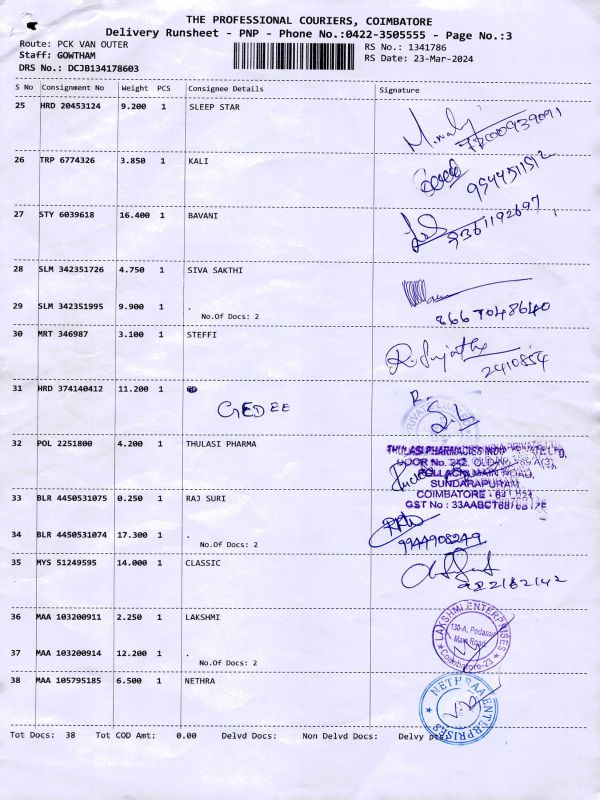 THE PROFESSIONAL COURIERS, COIMBATORE
Delivery Runsheet - PNP - Phone No.:0422-3505555 - Page No.:3
Route: PCK VAN OUTER RS No.: 1341786
Staff: GOWTHAM RS Date: 23-Mar-2024
DRS No.: DCJB134178603
S No Consignment No Weight PCS Consignee Details Signature
25 HRD 20453124 9.200 1 SLEEP STAR
26 TRP 6774326 3.850 1 KALI
9544511512
27 STY 6039618 16.400 1 BAVANI
9361192697
28 SLM 342351726 4.750 1 SIVA SAKTHI
29 SLM 342351995 9.900 1 .
No.Of Docs: 2
8667048640
30 MRT 346987 3.100 1 STEFFI
R. Sujatha
2410854
31 HRD 374140412 11.200 1
CREDEE
32 POL 2251800 4.200 1 THULASI PHARMA
THULASI PHARMACIES INDIA PRIVATE LTD,
DOOR No. 242,
POLLACHI MAIN ROAD,
SUNDARAPURAM,
COIMBATORE -
GST No : 
33 BLR 4450531075 0.250 1 RAJ SURI
34 BLR 4450531074 17.300 1 .
No.Of Docs: 2
9944908249
35 MYS 51249595 14.000 1 CLASSIC
36 MAA 103200911 2.250 1 LAKSHMI
LAKSHMI ENTERPRISES
130-A, Podanur
Main Road
Coimbatore-23
37 MAA 103200914 12.200 1 .
No.Of Docs: 2
38 MAA 105795185 6.500 1 NETHRA
NETHRAA ENTERPRISES
Tot Docs: 38 Tot COD Amt: 0.00 Delvd Docs: Non Delvd Docs: Delvy